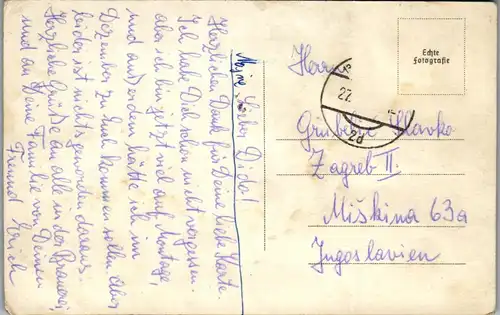 Mein Lieber Dido!
Herzlichen Dank für Deine liebe Karte.
Ich habe Dich schon nicht vergessen.
aber ich bin jetzt viel auf Montage,
und außerdem hätte ich im
Dezember zu Euch kommen sollen. Aber
leider ist nichts geworden daraus.
Herzliche Grüße an alle in der Brauerei,
und an Deine Familie von Deinem
Freund Erich
Echte
Fotografie
Herrn
27.
2d
Slavko
Zagreb II.
Miškina 63a
Jugoslavien